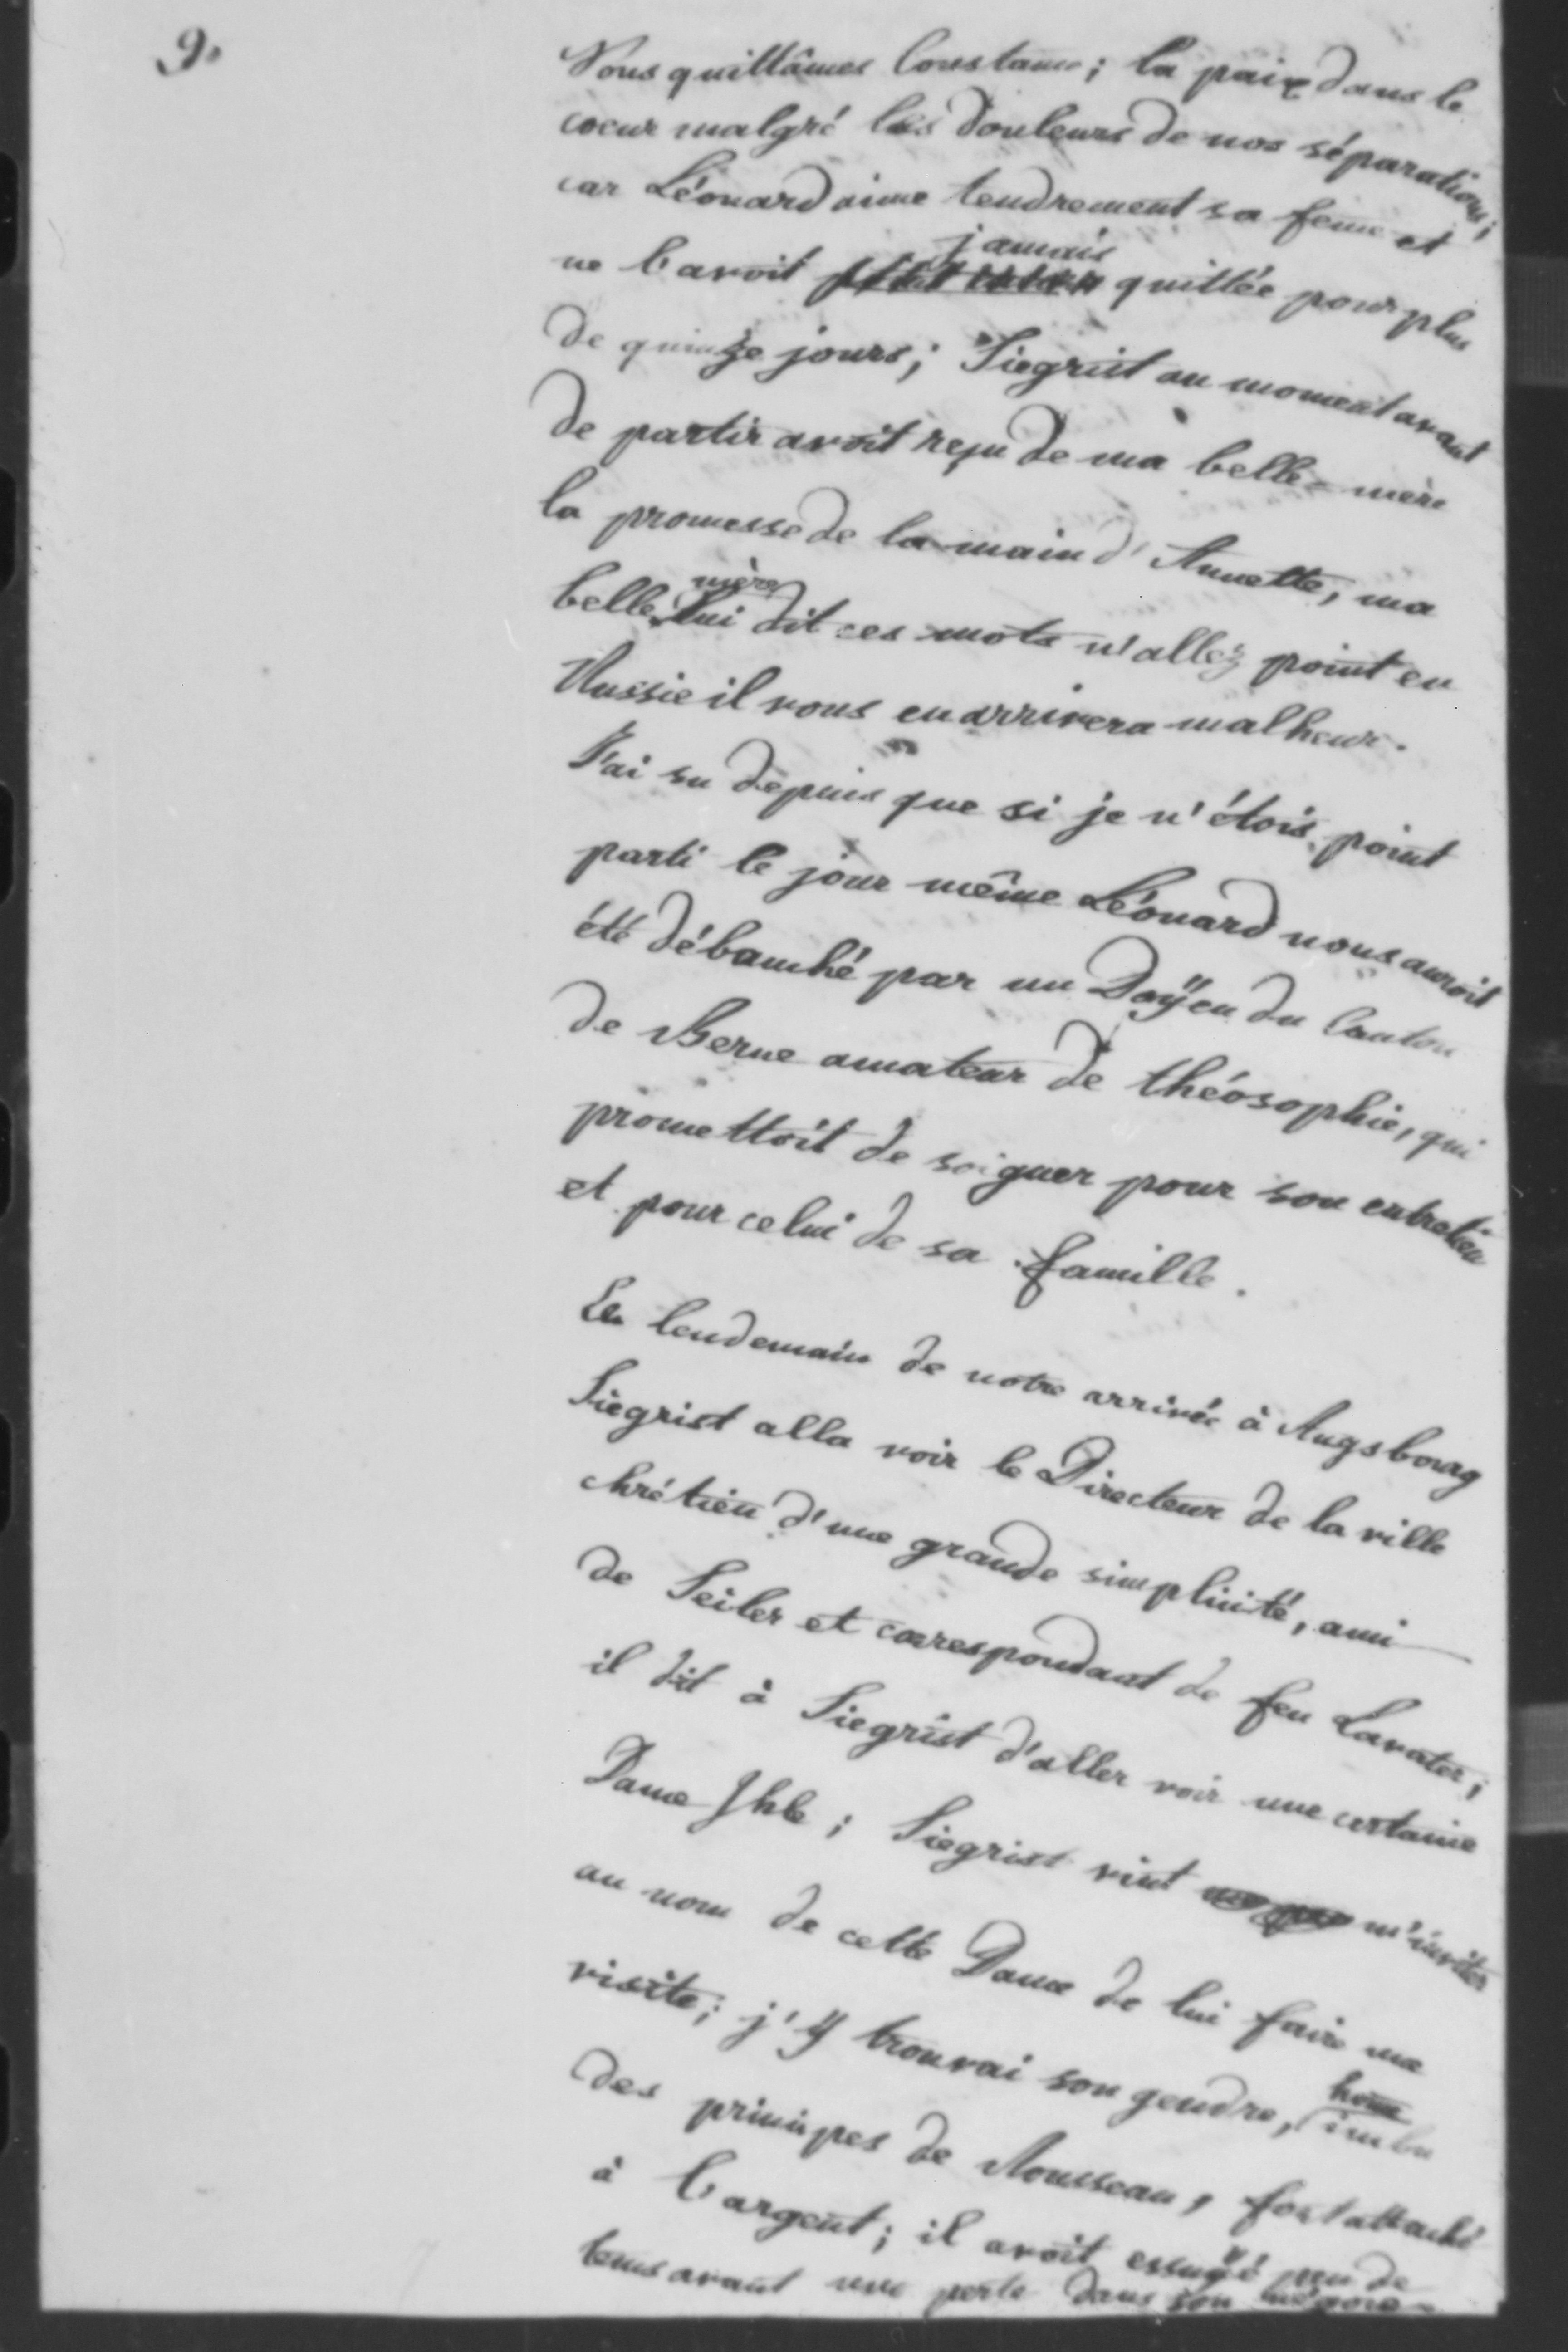 9.
Nous quittâmes Constance; la paix dans le
coeur malgré les douleurs de nos séparations;
car Léonard aime tendrement sa feme et
jamais
ne l'avoit quittée pour plus
de quinze jours; Siegrist au moment avant
de partir avoit reçu de ma belle-mère
la promesse de la main d'Annette, ma
mère
belle lui dit ces mots n'allez point en
Russie il vous en arrivera malheur.
J'ai su depuis que si je n'étois point
parti le jour même Léonard nous auroit
été débauché par un Doÿen du Canton
de Berne amateur de théosophie, qui
promettoit de soigner pour son entretien
et pour celui de sa famille.
Le lendemain de notre arrivée à Augsbourg
Siegrist alla voir le Directeur de la ville
chrétien d'une grande simplicité, ami
de Seiler et correspondant de feu Lavater;
il dit à Siegrist d'aller voir une certaine
Dame Ihle; Siegrist vint m'inviter
au nom de cette Dame de lui faire une
visite; j'y trouvai son gendre, imbu
home
des principes de Rousseau, fort attaché
à l'argent; il avoit essuÿé peu de
tems avant une perte dans son négoce